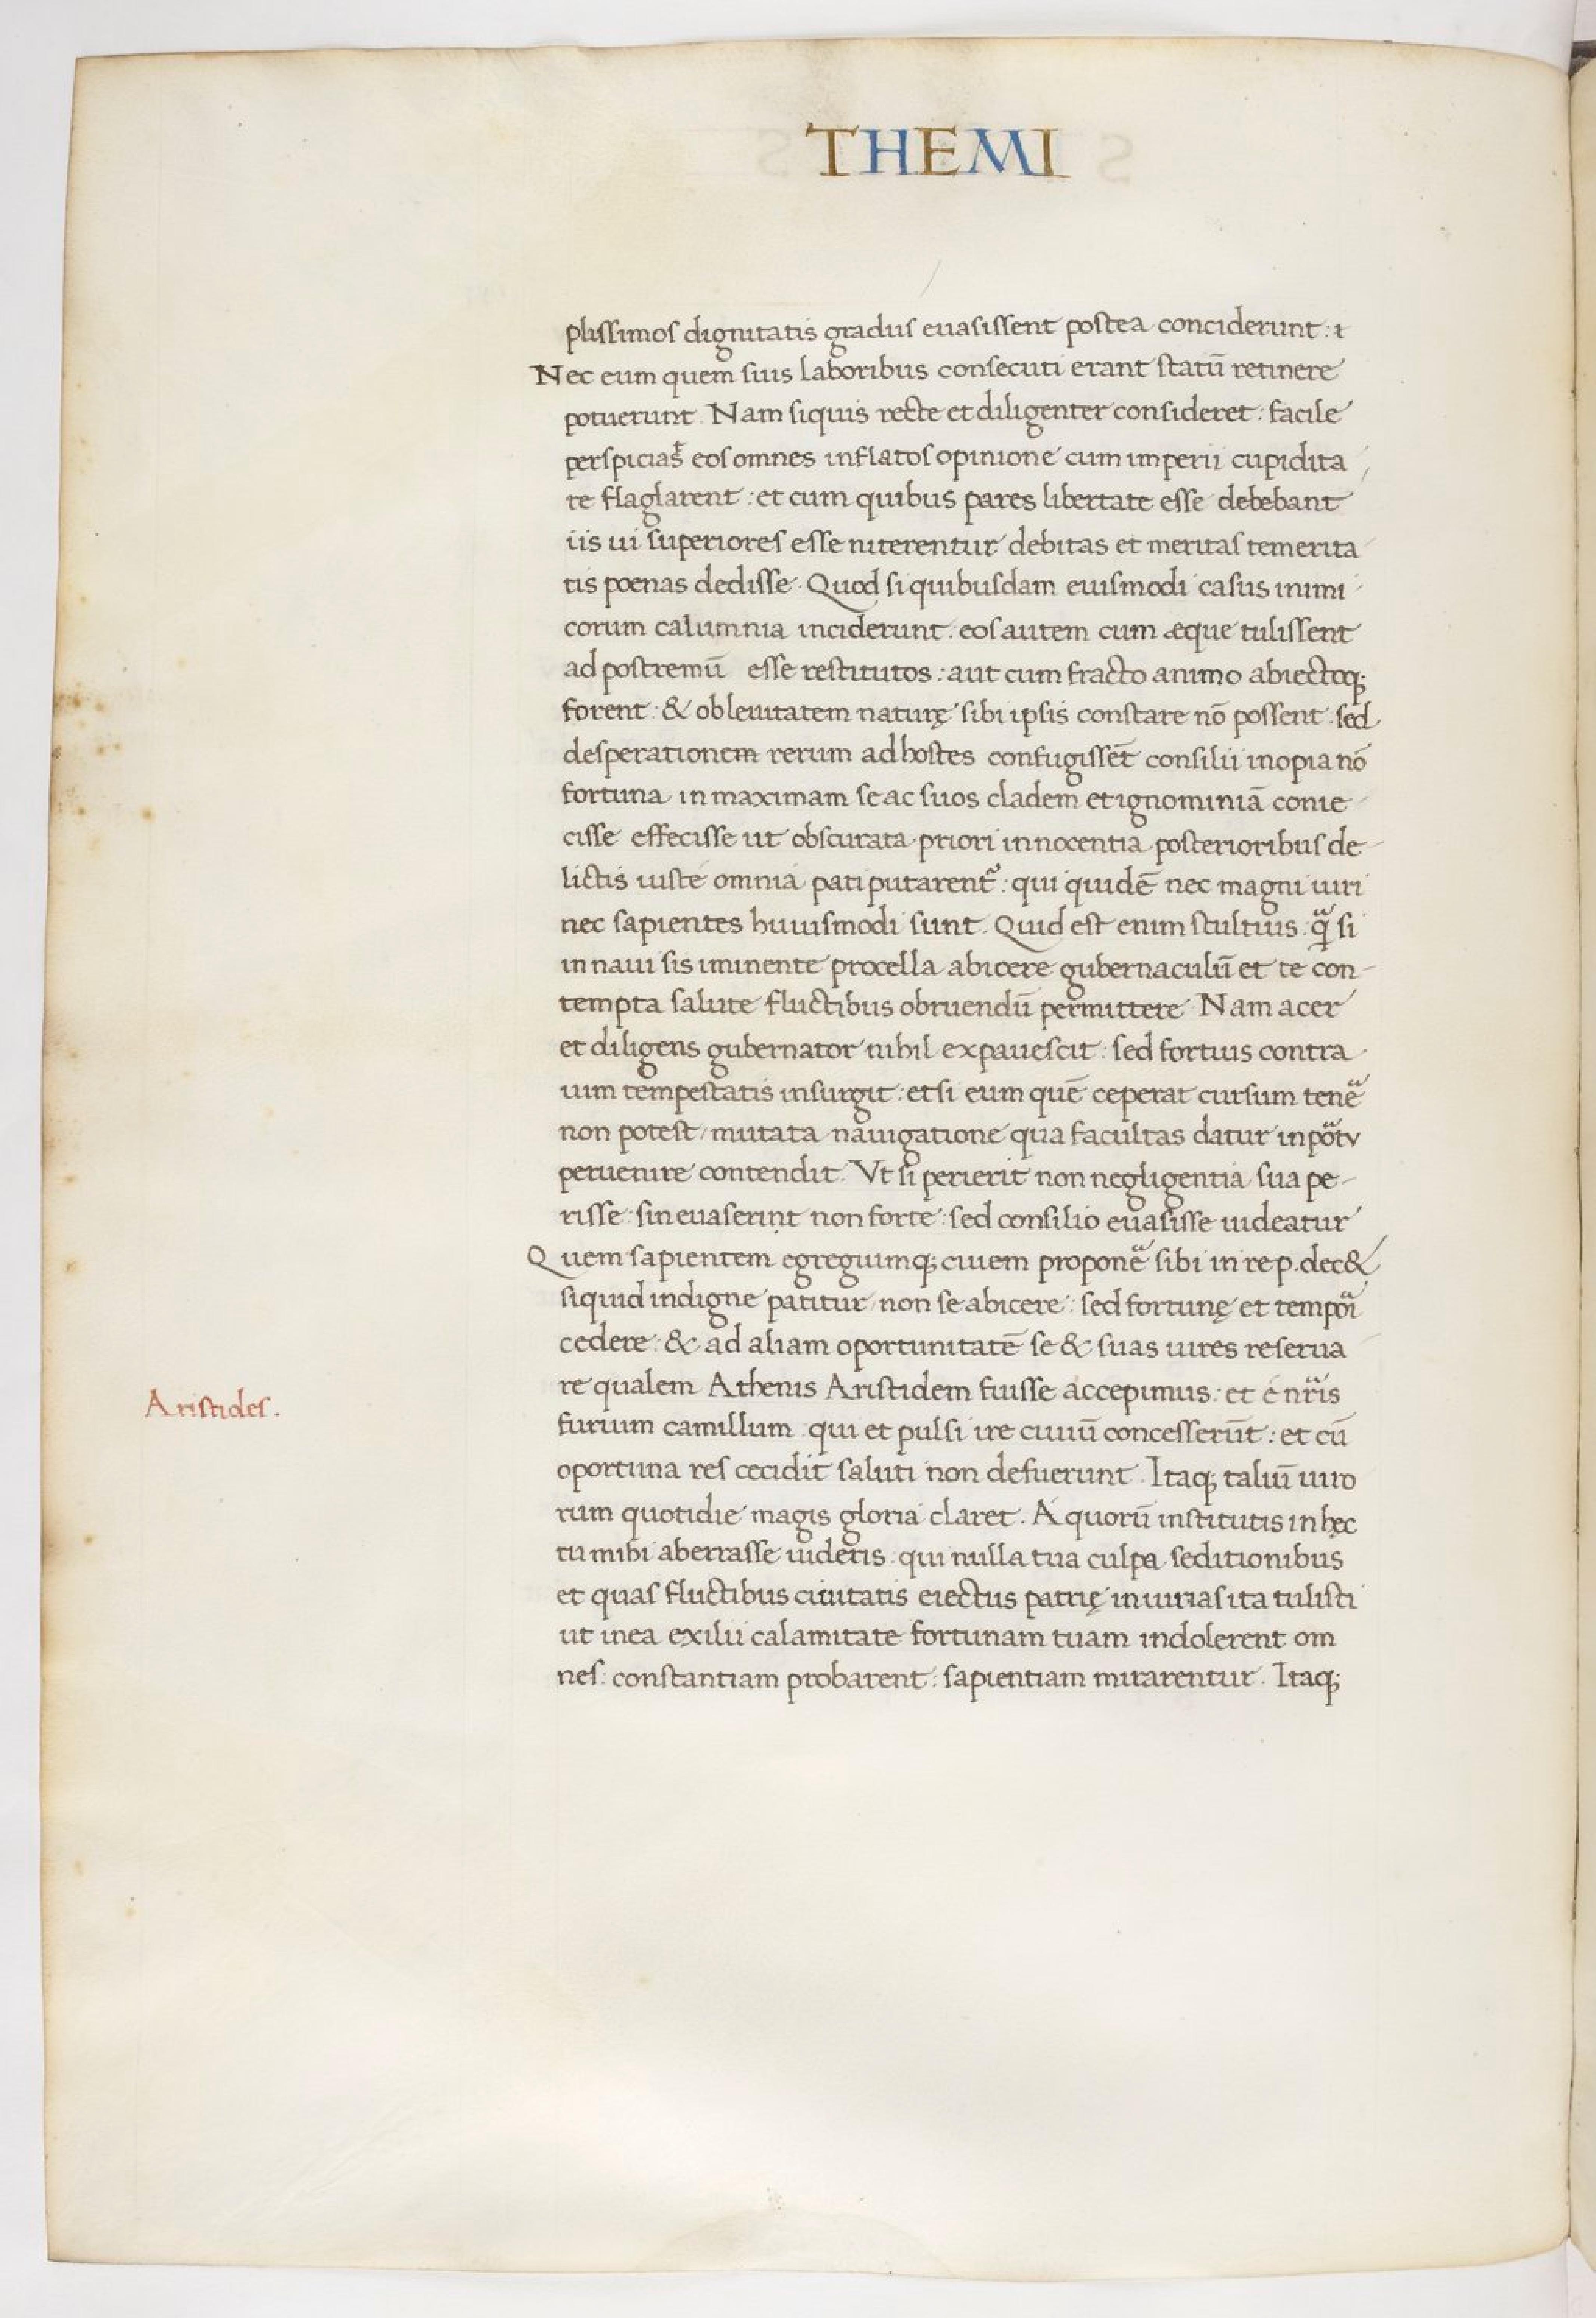 THEMI
plissimos dignitatis gradus euasissent postea conciderunt : &
Nec eum quem suis laboribus consecuti erant statū retinere
potuerunt . Nam siquis recte et diligenter consideret : facile
perspicias eos omnes inflatos opinione cum imperii cupidita
te flaglarent : et cum quibus pares libertate esse debebant
iis ui superiores esse niterentur debitas et meritas temerita
tis poenas dedisse . Quod si quibusdam eiusmodi casus inimi
corum calumnia inciderunt : eos autem cum æque tulissent
ad postremū esse restitutos : aut cum fracto animo abiectoq;
forent : & ob leuitatem naturę sibi ipsis constare nō possent . sed
desperationem rerum ad hostes confugissēt consilii inopia nō
fortuna in maximam se ac suos cladem et ignominiā conie
cisse effecisse ut obscurata priori innocentia posterioribus de-
lictis iuste omnia pati putarent᷑ : qui quidē nec magni uiri
nec sapientes huiuismodi sunt . Quid est enim stultius . qᷓ si
in naui sis iminente procella abicere gubernaculū et te con-
tempta salute fluctibus obruendū permittere Nam acer
et diligens gubernator nihil expauescit : sed fortius contra
uim tempestatis insurgit : et si eum quē ceperat cursum tenēᷓ
non potest / mutata nauigatione qua facultas datur in poᷓtv
peruenire contendit . Vt si perierit non negligentia sua pe-
risse : sin euaserint non forte : sed consilio euasisse uideatur
Quem sapientem egregiumq; ciuem proponēᷓ sibi in re p. dec&
siquid indigne patitur non se abicere : sed fortunę et tempoᷓi
cedere : & ad aliam oportunitatē se & suas uires reserua
re qualem Athenis Aristidem fuisse accepimus : et é nrᷓis
furium camillum qui et pulsi ire ciuiū concesserūt : et cū
oportuna res cecidit saluti non defuerunt . Itaq; taliū uiro
rum quotidie magis gloria claret . A quorū institutis in hęc
tu mihi aberrasse uideris . qui nulla tua culpa seditionibus
et quas fluctibus ciuitatis eiectus patrię iniurias ita tulisti
ut in ea exilii calamitate fortunam tuam indolerent om
nes : constantiam probarent : sapientiam mirarentur . Itaq;
Aristides.